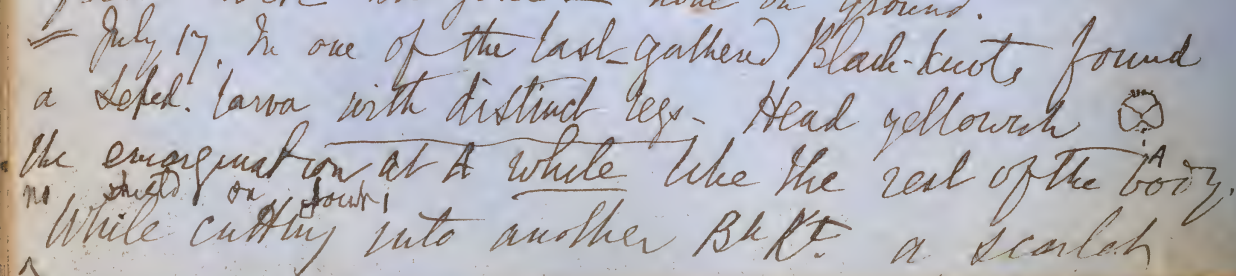 none on ground.
= July 17. In one of the last-gathered Black-knots found
a Lepid. larva with distinct legs - Head yellowish
A
the emargination at A white like the rest of the body.
no shield on
While cutting into another Bk Kt. a scarlet